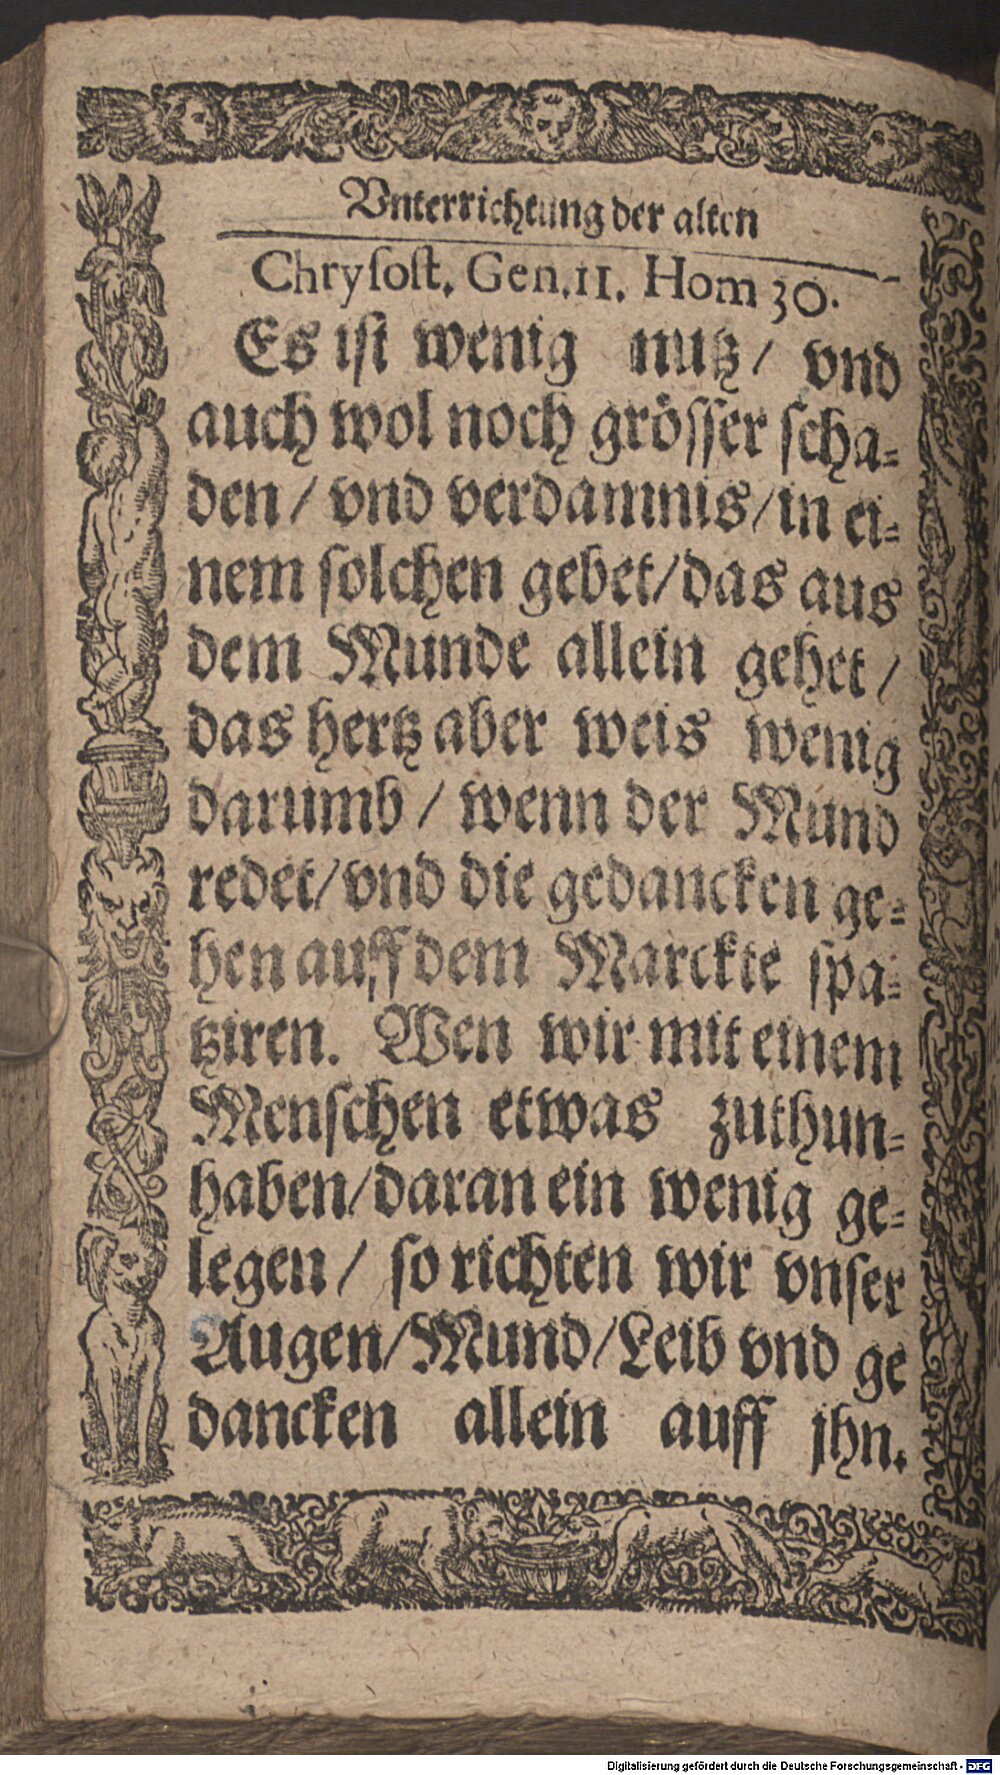 Vnterrichtung der alten
Chrysost. Gen. 11. Hom 30.
Es ist wenig nutz / vnd
auch wol noch grösser scha⸗
den / vnd verdamnis / in ei⸗
nem solchen gebet / das aus
dem Munde allein gehet /
das hertz aber weis wenig
darumb / wenn der Mund
redet / vnd die gedancken ge⸗
hen auff dem Marckte spa⸗
tziren. Wen wir mit einem
Menschen etwas zuthun⸗
haben / daran ein wenig ge⸗
legen / so richten wir vnser
Augen / Mund / Leib vnd ge
dancken allein auff jhn.
Digitalisierung gefördert durch die Deutsche Forschungsgemeinschaft - DFG